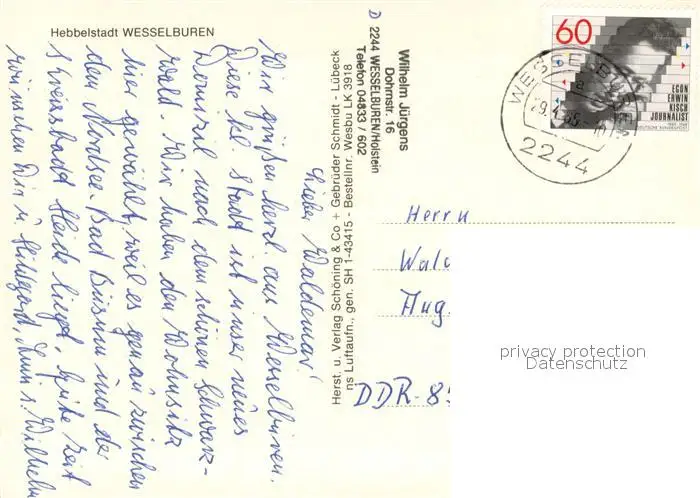 Hebbelstadt WESSELBUREN
Lieber Waldemar!
Wir grüßen herzl. aus Wesselburen.
Diese kl. Stadt ist unser neues
Domizil nach dem schönen Schwarz-
wald. Wir haben den Wohnsitz
hier gewählt, weil es genau zwischen
den Nordsee-Bad Büsum und der
Kreisstadt Heide liegt. Gute Zeit
wünschen Dir u. Hildegard, u. Wilhelm
Herst. u. Verlag Schöning & Co + Gebrüder Schmidt - Lübeck
ns Luftaufn., gen. SH 1-43415 - Bestellnr. Wesbu LK 3918
Wilhelm Jürgens
Dohrnstr. 16
D 2244 WESSELBUREN/Holstein
Telefon 04833 / 602
60
EGON
ERWIN
KISCH
JOURNALIST
1885-1948
DEUTSCHE BUNDESPOST
WESSELBUREN
a
29.4.85
2244
Herrn
Wald
Aug.
DDR-85
privacy protection
Datenschutz